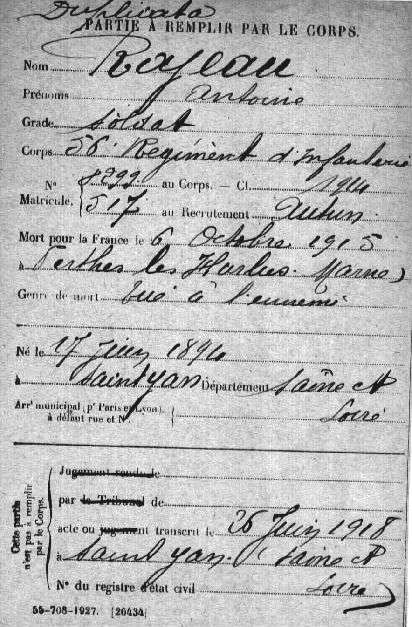 Duplicata
PARTIE À REMPLIR PAR LE CORPS.
Nom Rajeau
Prénoms Antoine
Grade Soldat
Corps 56e Regiment d'Infanterie
N° 8299 au Corps. — Cl. 1914
Matricule. 517 au Recrutement Autun
Mort pour la France le 6 Octobre 1915
à Perthes les Hurlus. Marne)
Genre de mort tué à l'ennemi
Né le 17 Juin 1894
à Saint yan Département Saône et
Arr^t municipal (p^r Paris et Lyon), Loire
à défaut rue et N°.
Cette partie n'est pas à remplir par le Corps.
Jugement rendu le
par le Tribunal de
acte ou jugement transcrit le 26 Juin 1918
à Saint yan. (Saône et
N° du registre d'état civil Loire)
55-708-1927. [26434]